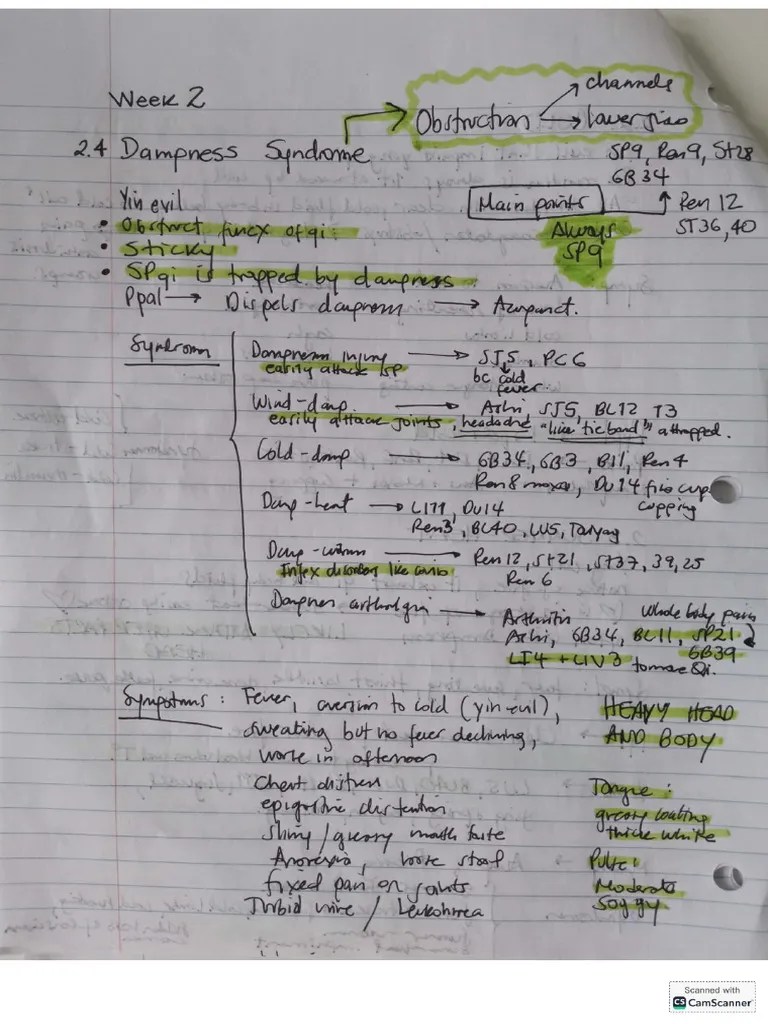 Week 2
Obstruction → channels
→ lower jiao
2.4 Dampness Syndrome
SP9, Ren 9, ST28
GB34
Yin evil
Main points
Ren 12
ST36, 40
• Obstruct funcx of qi.
Always
SP9
• Sticky
• SP qi is trapped by dampness.
Ppal → Dispels dampness → Acupunct.
Syndromes
Dampness injury → SJ5, PC6
easily attack SP
bc cold
fever.
Wind-damp → Ashi, SJ5, BL12
easily attack joints, headache "like tie band" trapped.
Cold-damp → GB34, GB3, B11, Ren 4
Ren 8 moxa, Du14 fire cup
cupping
Damp-heat → LI11, DU14
Ren3, BL40, LU5, Taiyang
Damp-warm → Ren 12, St21, ST37, 39, 25
Infex disorder like
Ren 6
Dampness arthralgia → Arthritis
Whole body pain
Ashi, GB34, BL11, SP21
GB39
LI4 + LIV3 to move Qi.
Symptoms: Fever, aversion to cold (yin-evil),
HEAVY HEAD
sweating but no fever declining,
AND BODY
worse in afternoon
Chest distress
Tongue:
epigastric distention
greasy coating
slimy/greasy mouth taste
thick white
Anorexia, loose stool
Pulse:
fixed pain on joints
Moderate
Turbid urine / Leukorrhea
Soggy
Scanned with
CS CamScanner